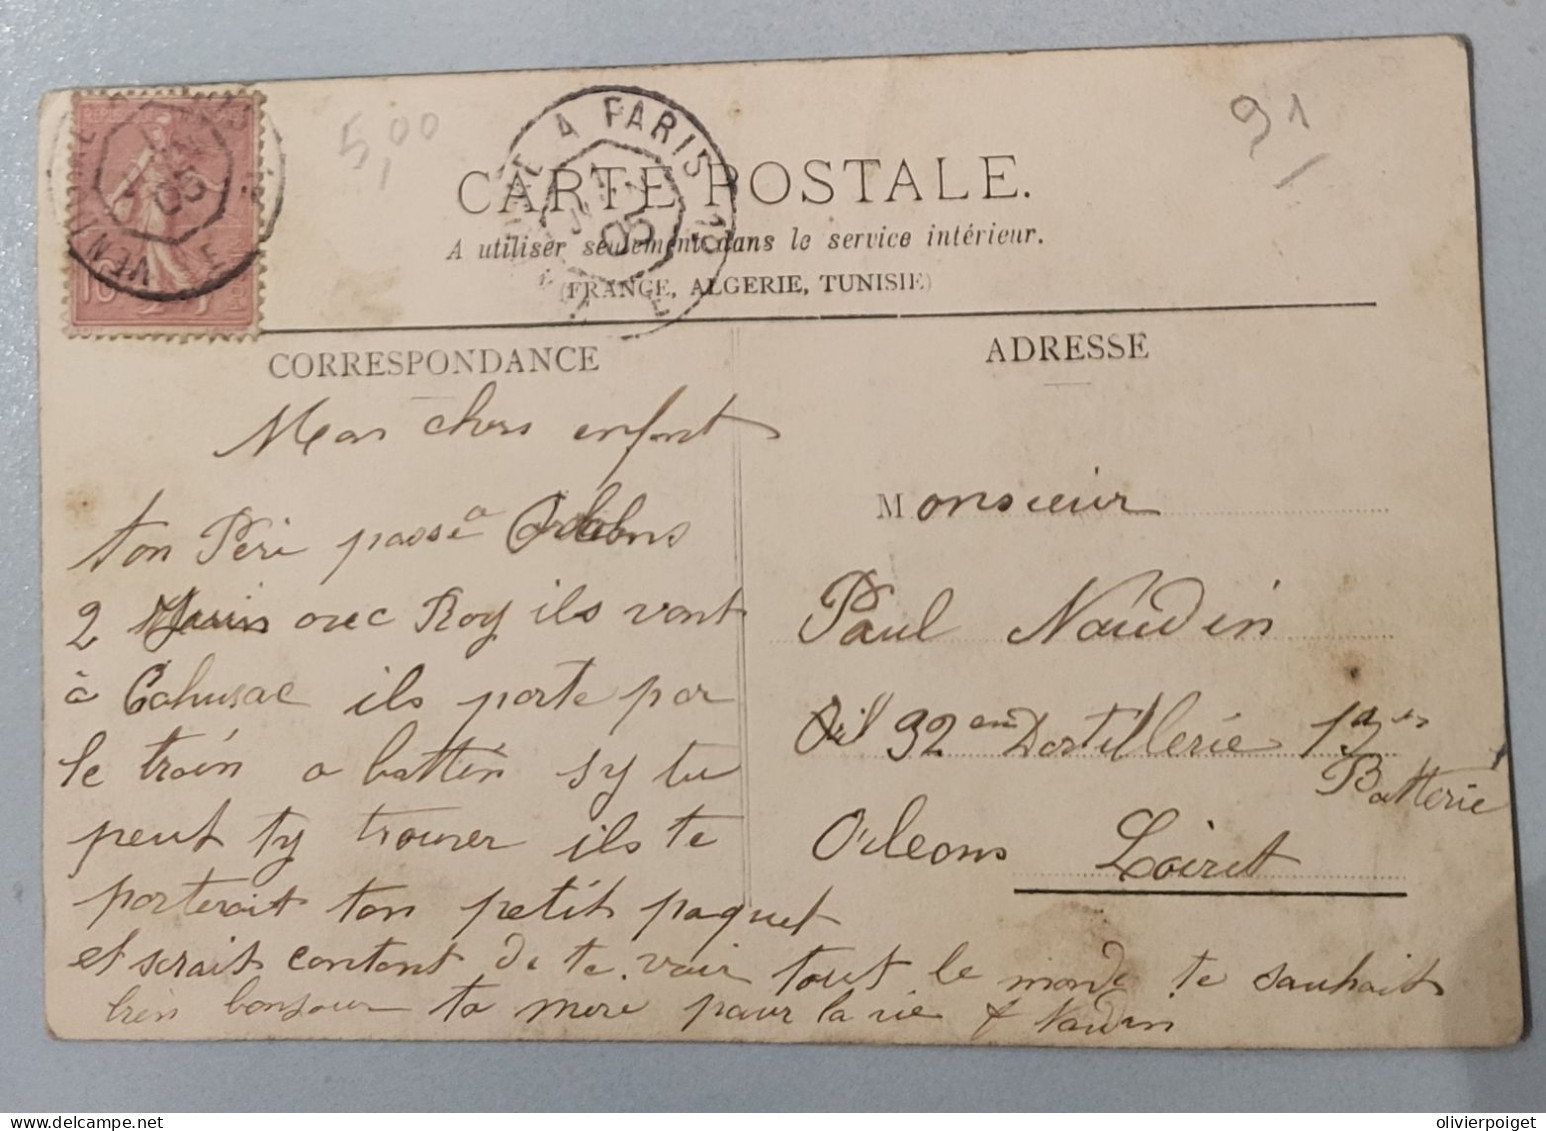 5,00
91
A PARIS
05
05
CARTE POSTALE.
A utiliser seulement dans le service intérieur.
(FRANCE, ALGERIE, TUNISIE)
CORRESPONDANCE
Mon chers enfant
ton Péré passé a
2 Juin avec Roy ils vont
à Cahusac ils porte par
le train a battin sy tu
peut ty trouver ils te
porterait ton petit paquet
et serait content de te voir tout le monde te sauhait
bien bonjour ta mere pour la vie f Naudin
ADRESSE
Monsieur
Paul Naudin
32 em Dartillerie 12
Batterie
Orleans Loiret
olivierpoiget